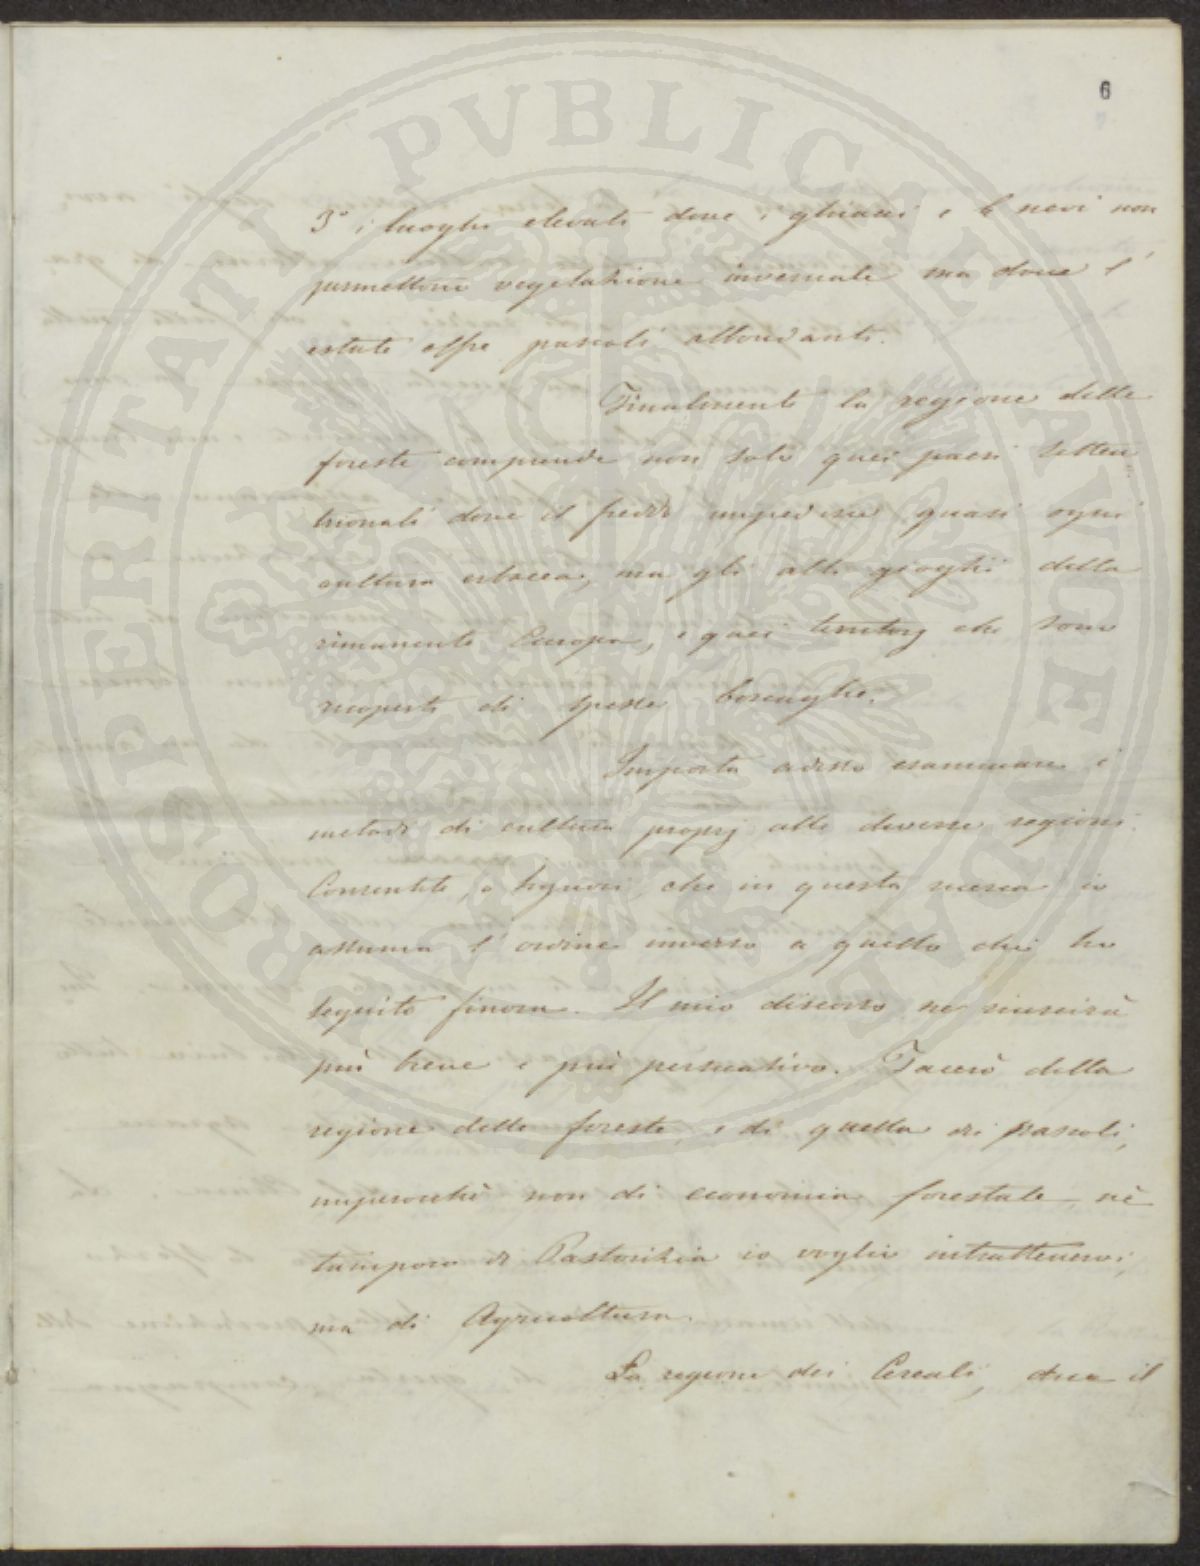 6
3º i luoghi elevati dove i ghiacci e le nevi non
permettono vegetazione invernale ma dove l'
estate offre pascoli abbondanti.
Finalmente la regione delle
foreste comprende non solo quei paesi setten
trionali dove il freddo impedisce quasi ogni
cultura erbacea, ma gli alti gioghi della
rimanente Europa, e quei territorj che sono
ricoperti di spesse boscaglie.
Importa adesso esaminare i
metodi di cultura proprj alle diverse regioni.
Consentite, o Signori, che in questa ricerca io
assuma l'ordine inverso a quello che ho
seguito finora. Il mio discorso ne riuscirà
più breve e più persuasivo. Tacerò della
regione delle foreste, e di quella dei pascoli,
imperocchè non di economia forestale, nè
tampoco di Pastorizia io voglio intrattenervi,
ma di Agricoltura.
La regione dei Cereali, dice il
PROSPERITATI PVBLICAE AVGENDAE